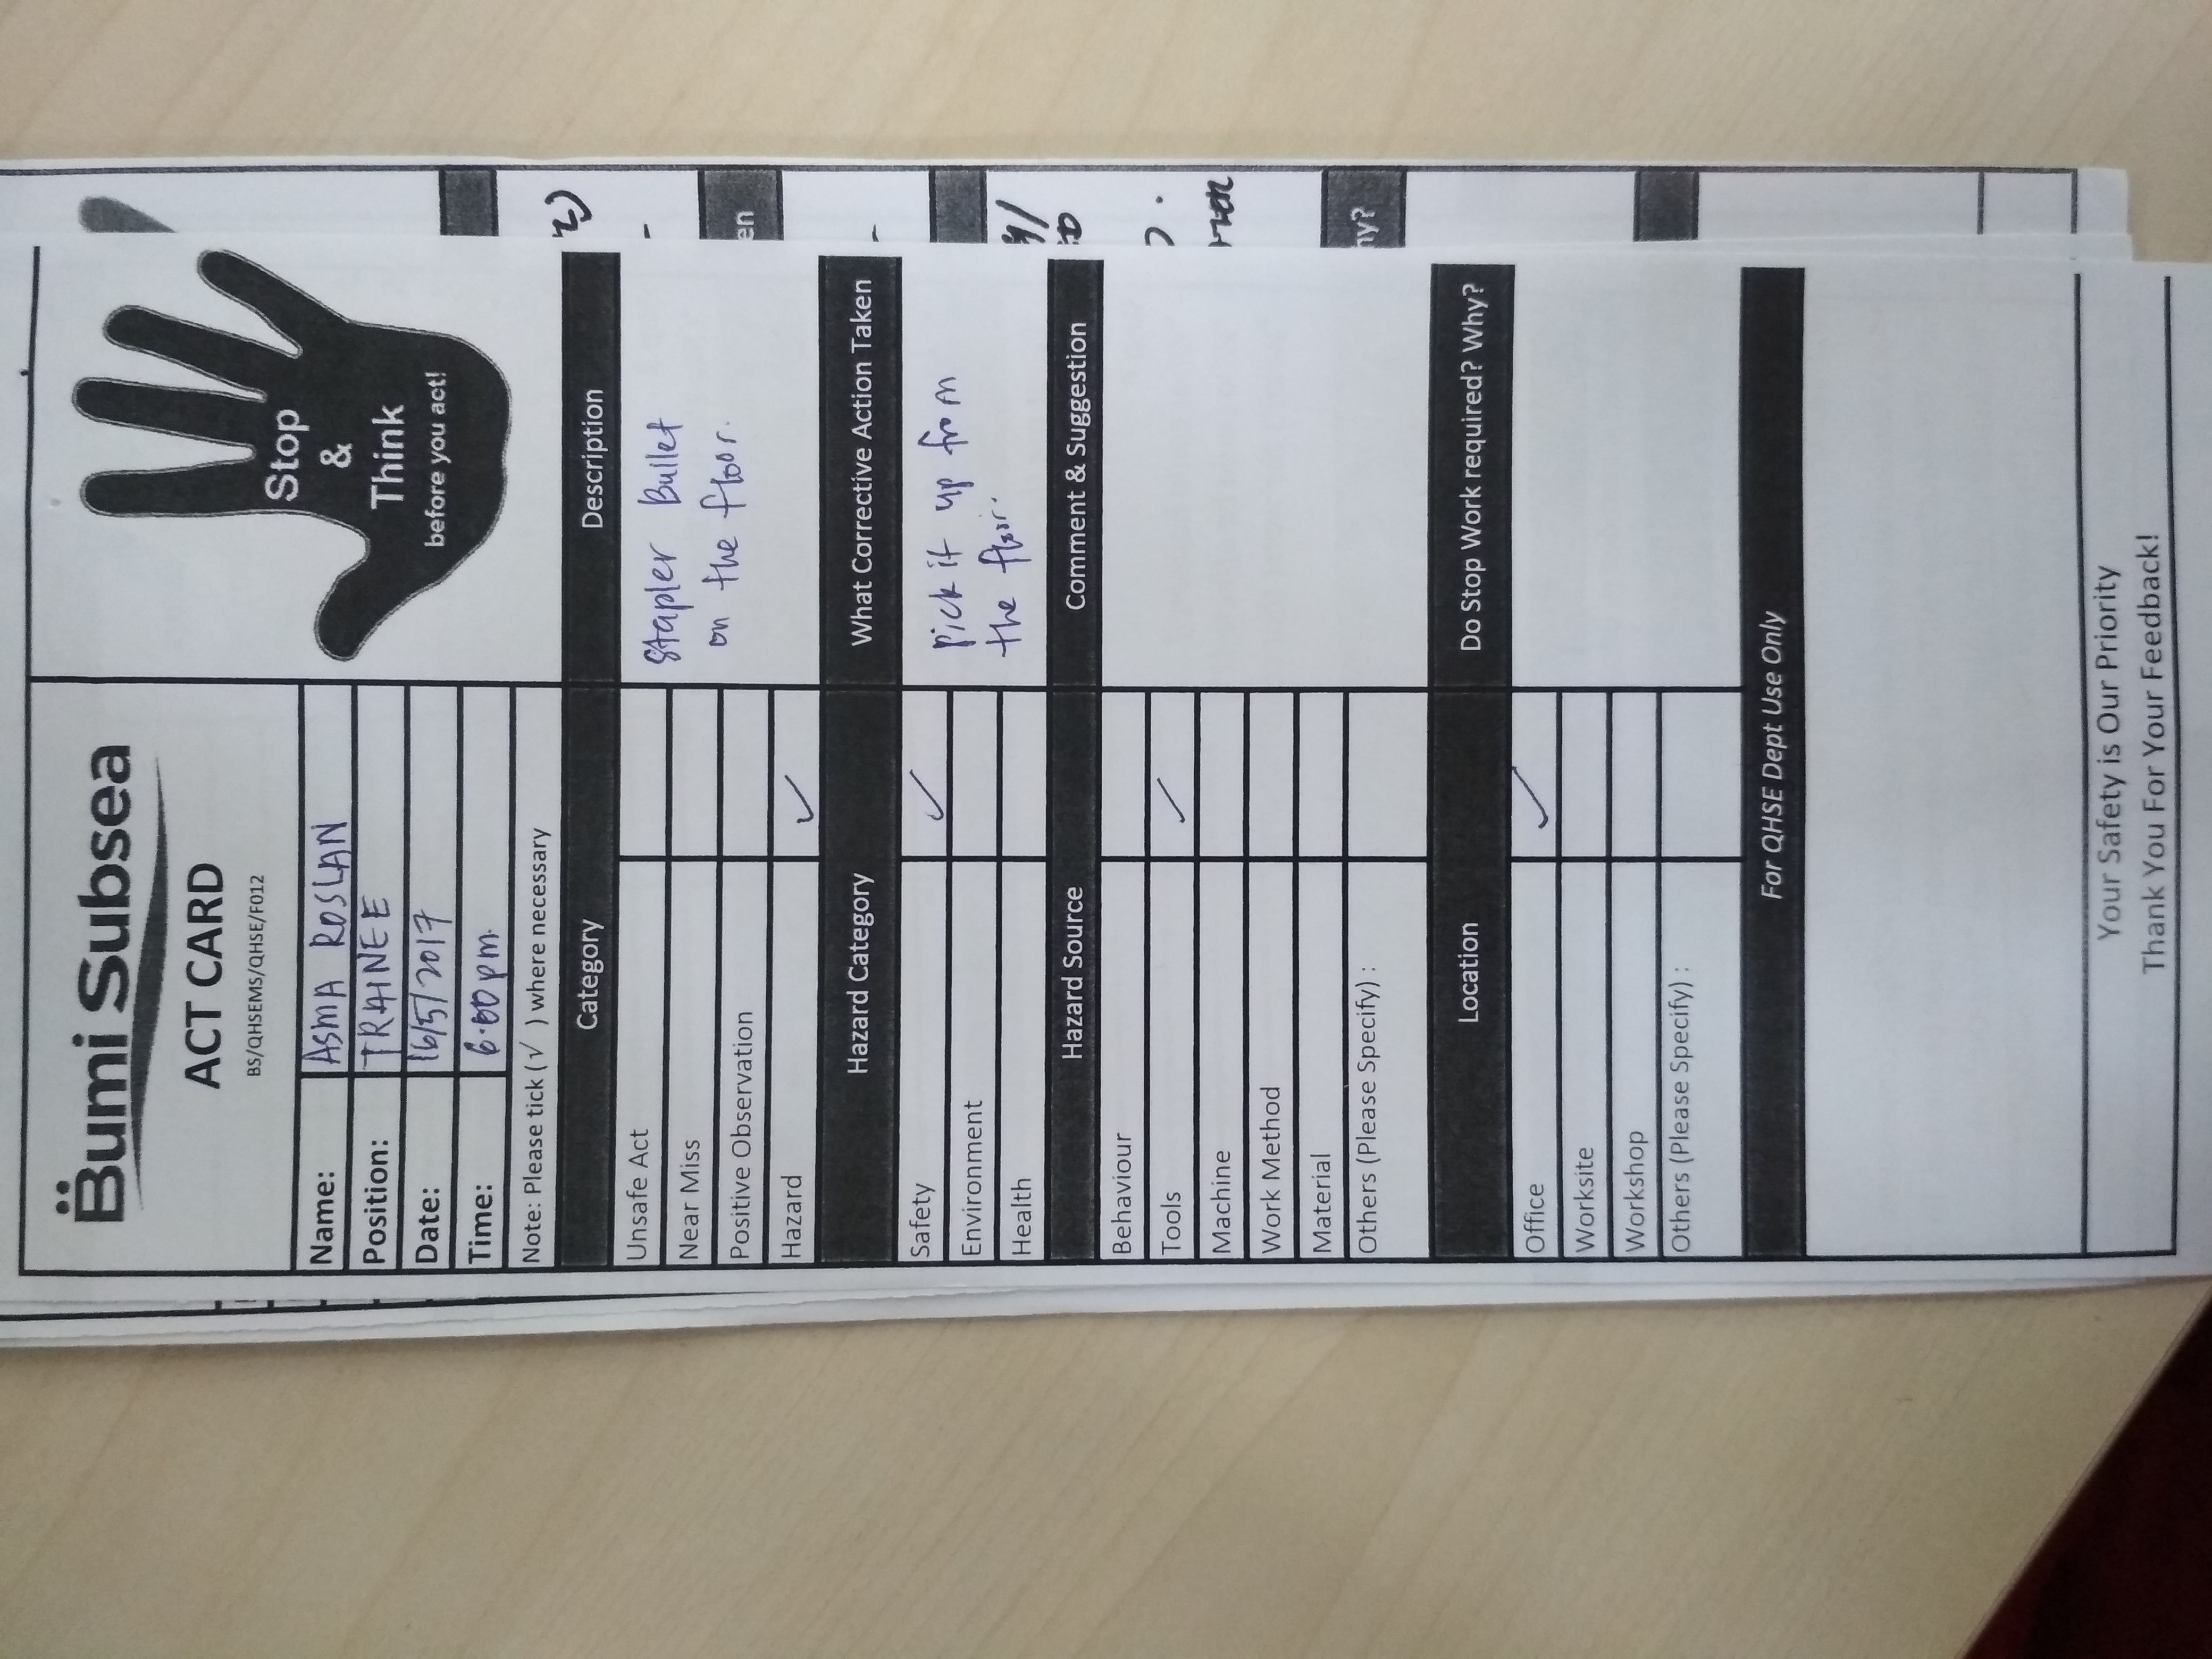 Bumi Subsea
ACT CARD
BS/QHSEMS/QHSE/F012
Stop
&
Think
before you act!
Name: ASMA ROSLAN
Position: TRAINEE
Date: 16/5/2017
Time: 6.00pm.
Note: Please tick ( √ ) where necessary
Category Description
Unsafe Act
Near Miss
Positive Observation
Hazard ✓
Stapler Bullet
on the floor.
Hazard Category What Corrective Action Taken
Safety ✓
Environment
Health
pick it up from
the floor.
Hazard Source Comment & Suggestion
Behaviour
Tools ✓
Machine
Work Method
Material
Others (Please Specify) :
Location Do Stop Work required? Why?
Office ✓
Worksite
Workshop
Others (Please Specify) :
For QHSE Dept Use Only
Your Safety is Our Priority
Thank You For Your Feedback!
en
hy?